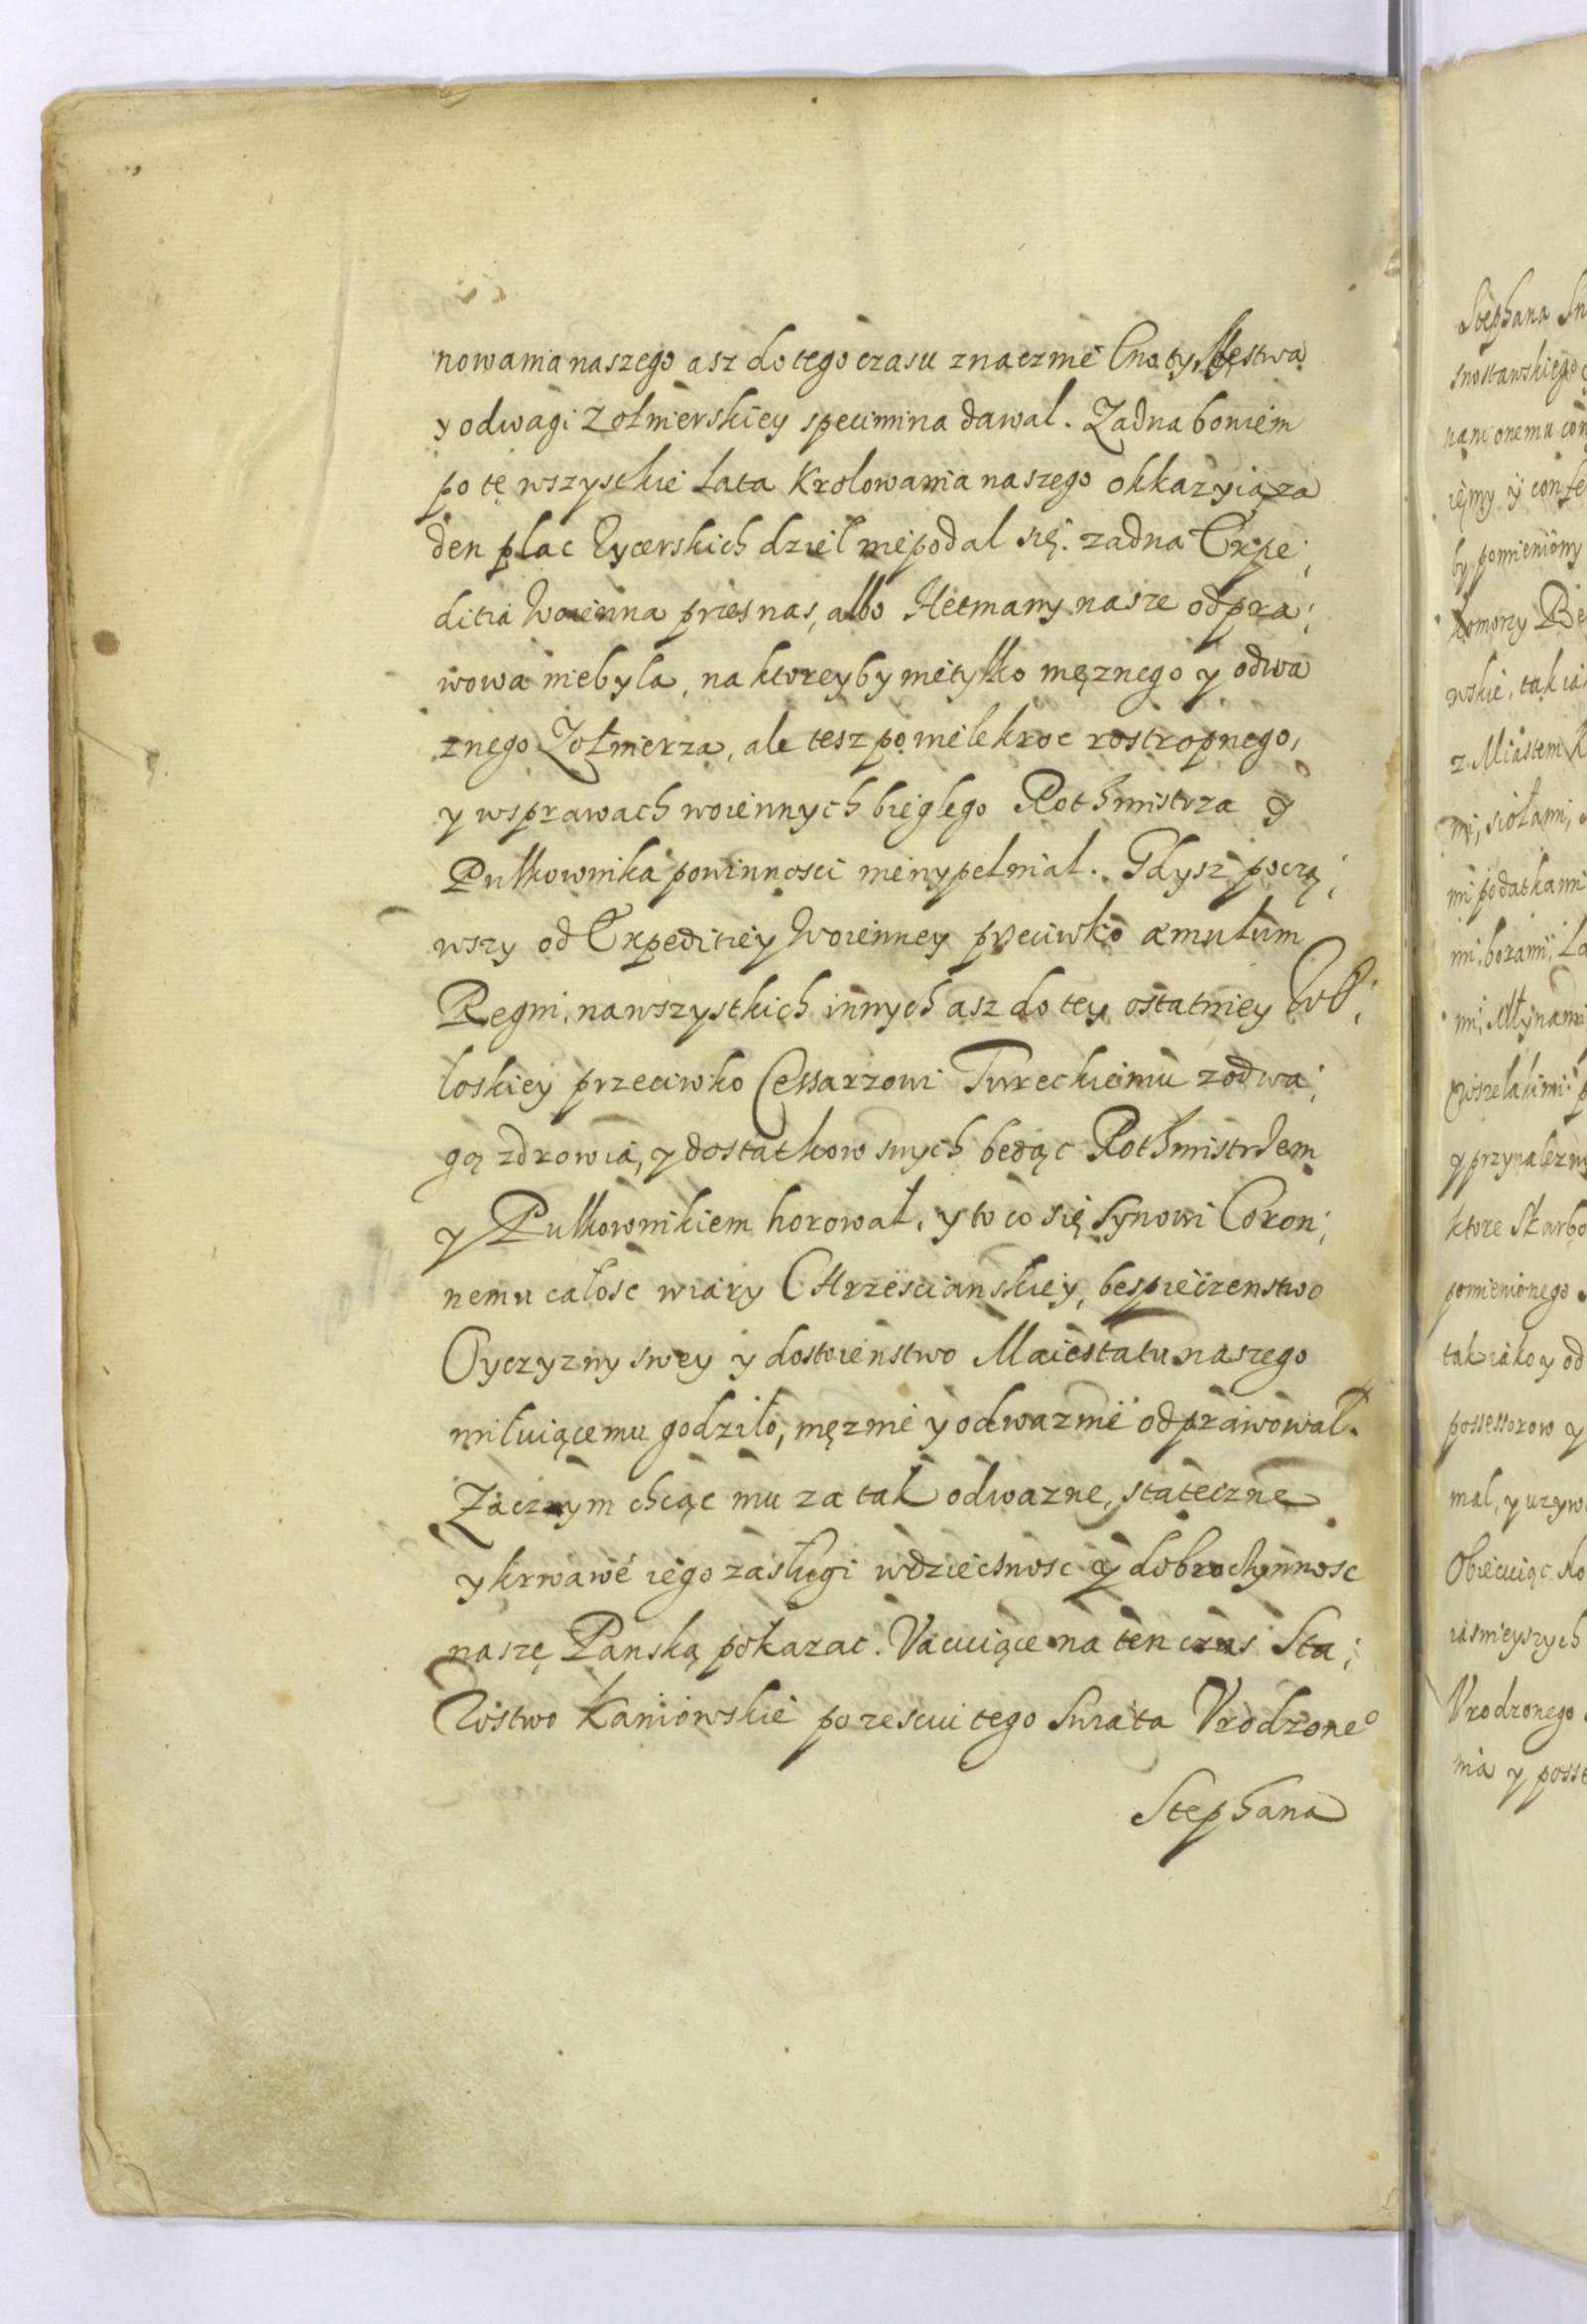 nowania naszego asz do tego czasu znacznie Cnoty, Męstwa
y odwagi Zołnierskiey specimina dawal. Zadna boniem
po tę wszystkie Lata Krolowania naszego okkazyia, za
den plac Rycerskich dzieł niepodal się. zadna Expe;
ditia Woienna przes nas, albo Hetmany nasze odpra;
wowa niebyla, na ktoreyby nietylko męznego y odwa
znego Zołnierza, ale tesz ponilekroc rostropnego,
y wsprawach woiennych bieglego Rothmistrza y
Pulkownika powinnosci niewypelnial. Gdysz począ;
wszy od Expeditiey Woienney przeciwko æmulum
Regni, nawszystkich innych asz do tey ostatniey Wo;
loskiey przeciwko Cessarzowi Tureckiemu zodwa;
gą zdrowia, y dostatkow swych bedąc Rothmistrzem
y Pulkownikiem horował, y to co się Synowi Coron;
nemu całosc wiary CHrzescianskiey, bespieczenstwo
Oyczyzny swey y dostoienstwo Maiestatu naszego
miłuiącemu godziło, męznie y odwaznie odprawował.
Zacznym chcąc mu za tak odwazne, stateczne
y krwawe iego zasługi wdziecznosc y dobroczynnosc
naszę Panską pokazac. Vacuiące na ten czas Sta;
rostwo Kaniowskie po zesciu tego Swiata Vrodzone⁰
Stephana
Stephana
snostawskiego
iemy y confe
by pomieniony
komorzy
wskie, tak ia
z Miastem K
mi, siołami,
mi podatkami
mi, borami, La
mi, Młynami
wszelakimi p
y przynalezny
ktore Skarbo
pomienionego
tak iako y od
possessorow y
mal, y uzyw
Obiecuiąc
iasnieyszych
Vrodzonego
nia y posse